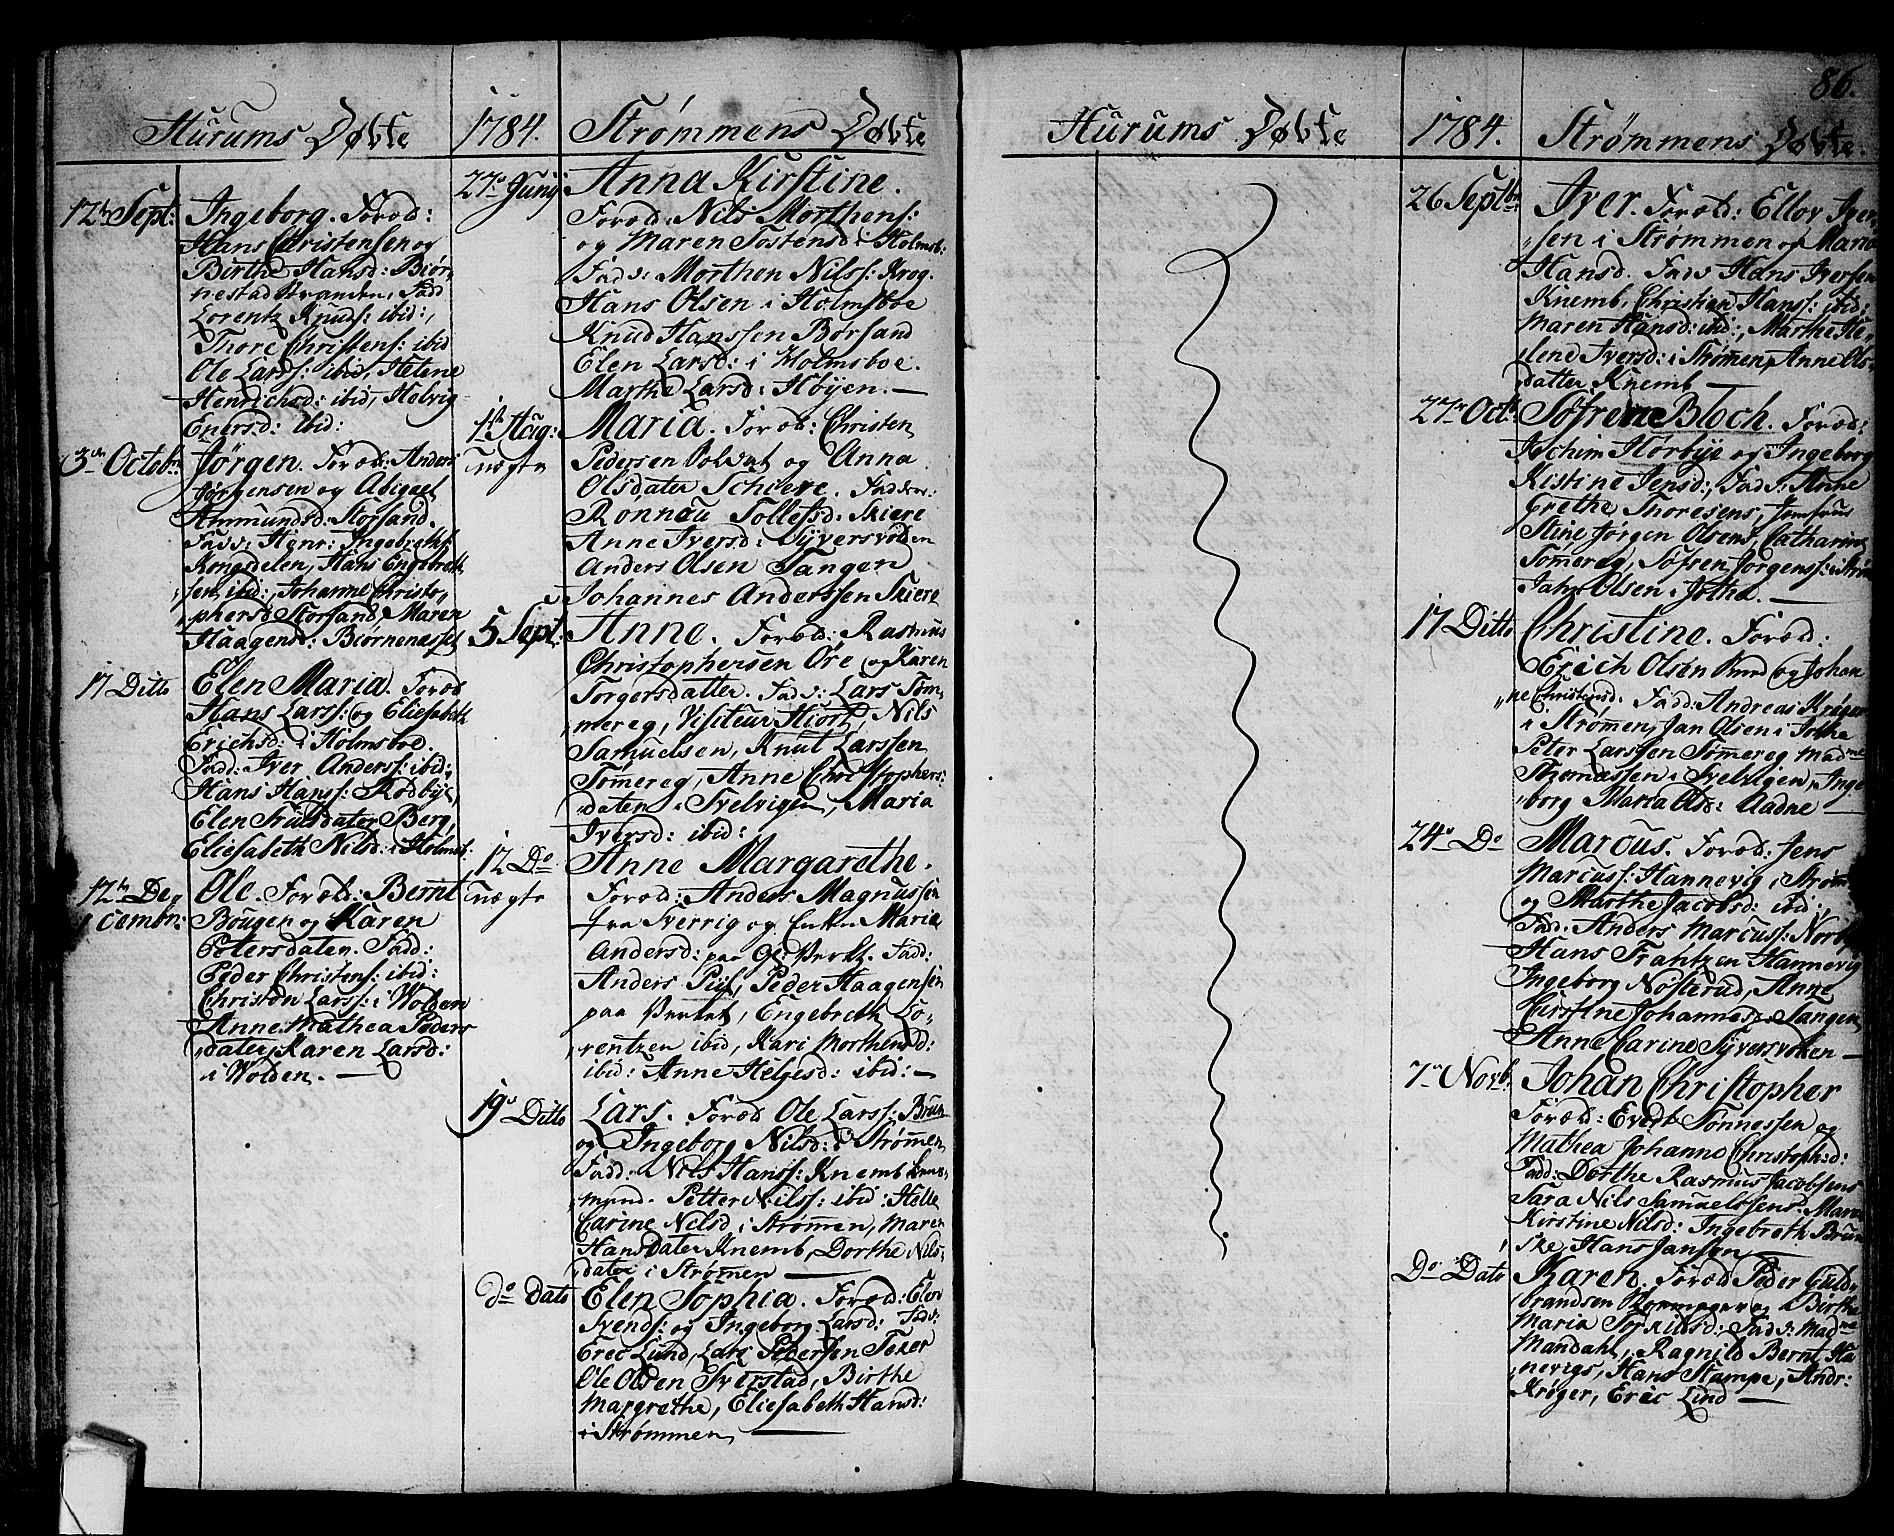 Hurums Døbte
12te Sept:
Ingeborg. Foræd:
Hans Christensen og
Birthe Hansd: Biør-
nestad Stranden, Fadd
Lorentz Knuds: ibid:,
Thore Christens: ibid
Ole Larss: ibid, Helene
Henrichsd: ibid, Helvig
Enersd: ibid:
3die Octobr:
Jørgen. Foræd: Anders
Jørgensen og Abigael
Ammundsd: Storsand.
Fadd: Henr: Ingebreths:
Kongsdelen, Hans Engebreth
sen ibid:, Johanne Christo-
phersd Storsand, Maren
Haagensd: Biørnenesset
17 Ditto
Elen Maria. Foræd
Hans Larss: og Eliesabeth
Erichsd: i Holmsboe.
Fadd: Iver Anderss: ibid:,
Hans Hanss: Rødbye,
Elen Trulsdater Berg,
Eliesabeth Nilsd: i Holmsb:
12te De-
cembr:
Ole. Foræld: Bernt
Bougen og Karen
Petersdaten. Fadd:
Peder Christens: ibid:
Christen Larss: i Wolden
Anne Mathea Peders
dater, Karen Larsd:
i Wolden. —
1784. Strømmens Døbte
27de Junij
Anna Kirstine.
Foræd: Nils Morthens:
og Maren Tostensd i Holmsb:
Fadd: Morthen Nilss: Krog.
Hans Olsen i Holmsboe
Knud Hanssen Børsand
Elen Larsd: i Holmsboe.
Marthe Larsd: Høyen. —
1ste Aug:
uægte
Maria. Foræd: Christen
Pedersen og Anna
Olsdater Schiere. Faddere:
Ronnau Tollefsd: Skiere
Anne Iversd: Syversvoden
Anders Olsen Tangen
Johannes Anderssen Skiere
5 Sept:
Anne. Foræd: Rasmus
Christophersen Øre og Karen
Torgersdatter. Fadd: Lars Tøm-
mereg, Visiteur Hiort, Nils
Samuelsen, Knut Larssen
Tømereg, Anne Christophers:
daten i Svelvigen, Maria
Iversd: ibid:
12 Do
uægte
Anne Margarethe.
Foræd: Anders Magnussen
fra Sverrig og Enken Maria
Andersd: paa Gl: Verkt. Fadd:
Anders Piil, Peder Haagensen
paa Verket, Engebreth Lo-
rentzen ibid, Kari Morthensd:
ibid: Anne Helgesd: ibid: —
19de Ditto
Lars. Foræd Ole Larss: Brun
og Ingeborg Nilsd: i Strømen
Fadd: Nils Hanss: Knemb
mynd. Petter Nilss: ibid: Helle
Carine Nilsd i Strømen, Maren
Hansdater Knemb, Dorthe Nils-
dater i Strømen —
do Dato
Elen Sophia. Foræd: Elev
Svends: og Ingeborg Larsd: Fadd:
Erec Lund, Lars Pedersen Toker
Ole Olsen Sverstad, Birthe
Margrethe, Eliesabeth Hansd:
i Strømmen, —
Hurums Døbte
86.
1784. Strømmens Døbte.
26 Septbr:
Iver. Foræld: Ellov Iver-
sen i Strømmen og Maria
Hansd. Fadd Hans Iversen
Knemb, Christen Hanss: ibid:
Maren Hansd: ibid:, Marthe He-
lene Iversd: i Strømen, Anne Ols-
datter Knemb —
27de Oct:
Søfrene Bloch. Foræd:
Jochim Hørbye og Ingeborg
Kistine Jensd:, Fadd: Anne
Grethe Thoresens, Jomfrue
Stine Jørgen Olsens, Catharine
Tømereg, Søfren Jørgenss: i Strøm
Jahn Olsen Jothe. —
17 Ditto
Christine. Foræd:
Erich Olsen og Johan
ne Christensd. Fadd: Andreas Krøger
i Strømen, Jan Olsen i Jothe
Peter Larssen Tømereg, Madme
Thomassen i Svelvigen, Inge-
borg Maria Old: Aadne —
24de Do
Marcus. Foræd: Jens
Marcuss: Hannevig i Strømm
og Marthe Jacobsd: ibid:
Fadd: Anders Marcuss: Nørby
Hans Frantzen Hannevig
Ingeborg Nosterud, Anne
Cirstine Johannesd: Tangen
Anne Carine Syversvoken —
7de Novb:
Johan Christopher
Foræd: Evedt Tønnessen og
Mathea Johanne Christophd:
Fadd: Dorthe Rasmus Jacobsens
Sara Nils Samuelssens: Maren
Kirstine Nilsd: Ingebreth Brun
ske, Hans Jansen —
Do Dato
Karen. Foræd Peder Guld-
brandsen og Birthe
Maria Torkildsd:, Fadd: Madme
Mandahl, Ragnild Bernt Ha-
nevigs, Hans Stampe, Andr:
Krøger, Erec Lind —